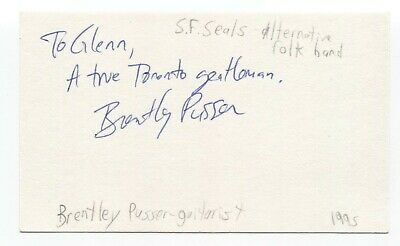 S.F. Seals alternative
folk band
To Glenn,
A true Toronto gentleman.
Brentley Pusser
Brentley Pusser-guitarist 1995